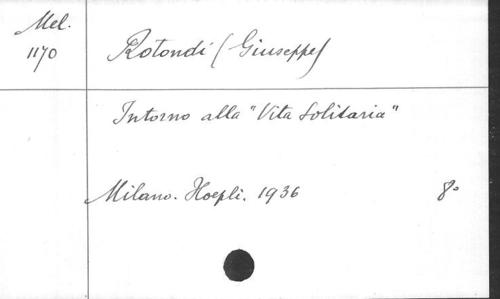 Mel.
1170
Rotondi (Giuseppe)
Intorno alla "Vita Solitaria"
Milano. Hoepli. 1936 8°